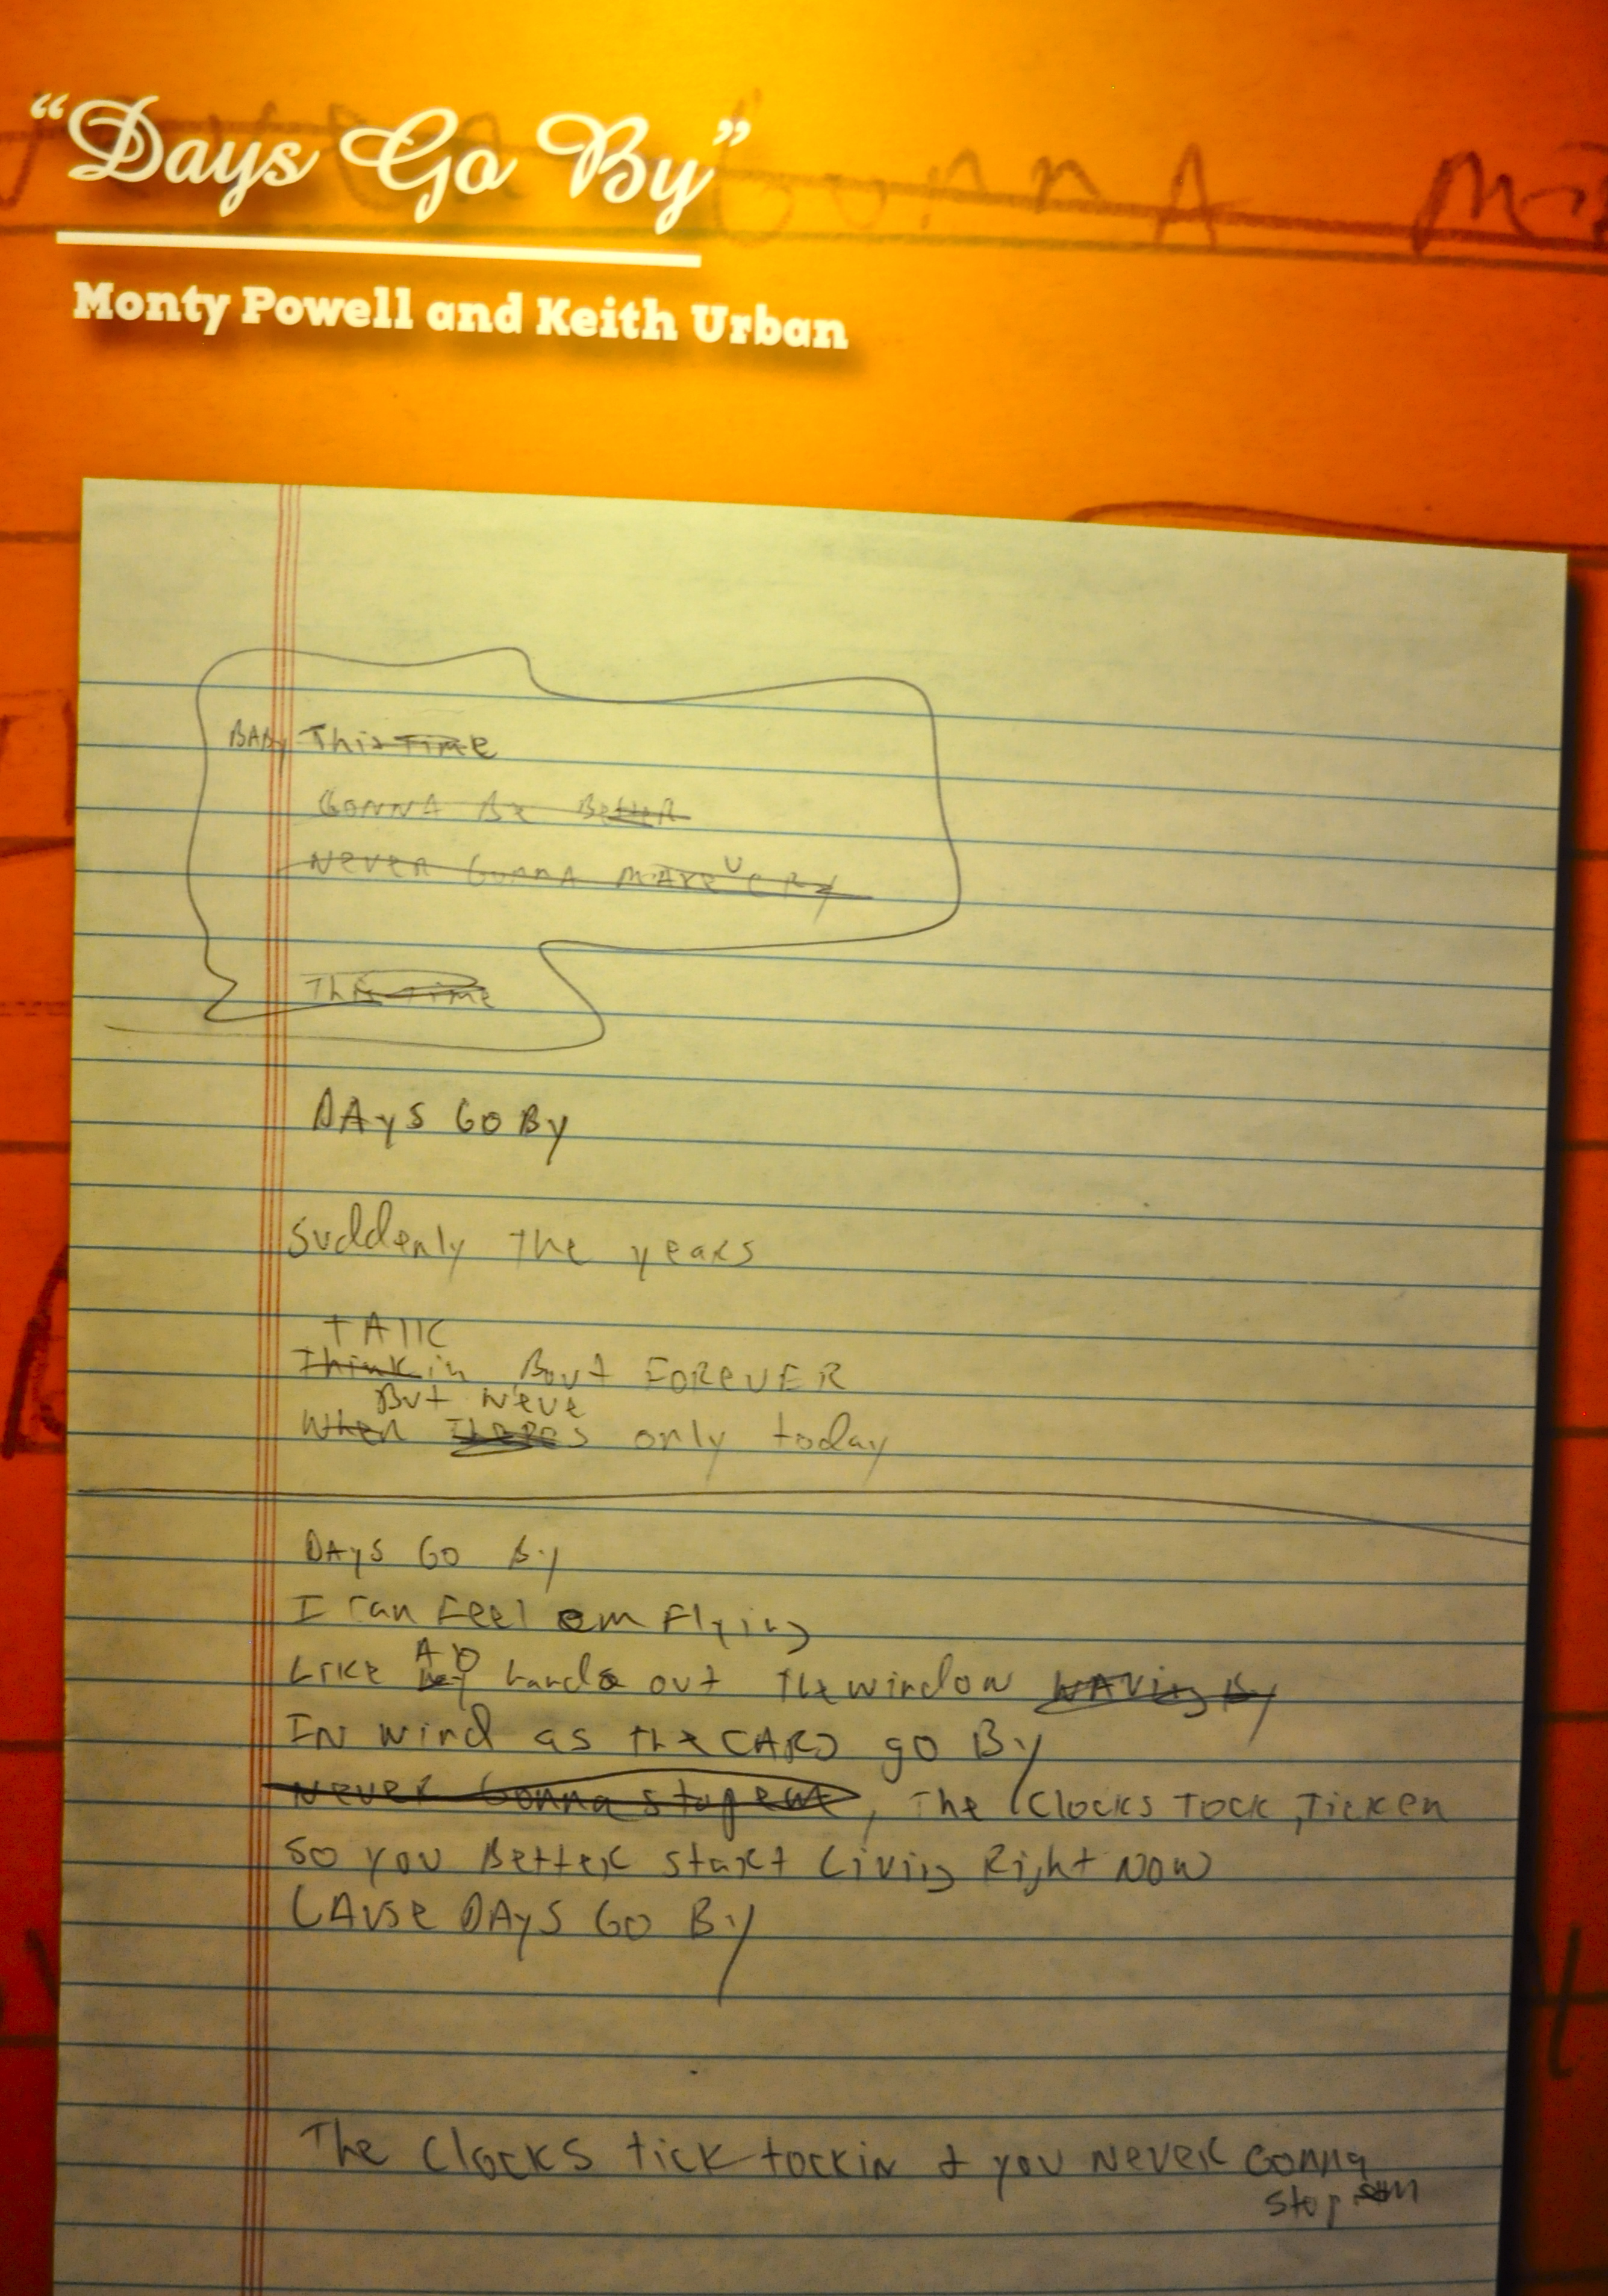 “Days Go By”
Monty Powell and Keith Urban
BABY This Time
GONNA Be Better
Never Gonna MAKE U CRY
This Time
DAYS GO BY
Suddenly the years
TAlk
Thinkin Bout FOREVER
But Weve
When Theres only today
DAYS GO By
I can Feel em Flying
A
Like hand out the window WAVing By
IN wind as the CARS go By
Never Gonna stop em, The Clocks Tock, Ticken
So you Better start Living Right Now
CAUSE DAYS GO By
The Clocks tick tockin & you Never Gonna
stop em